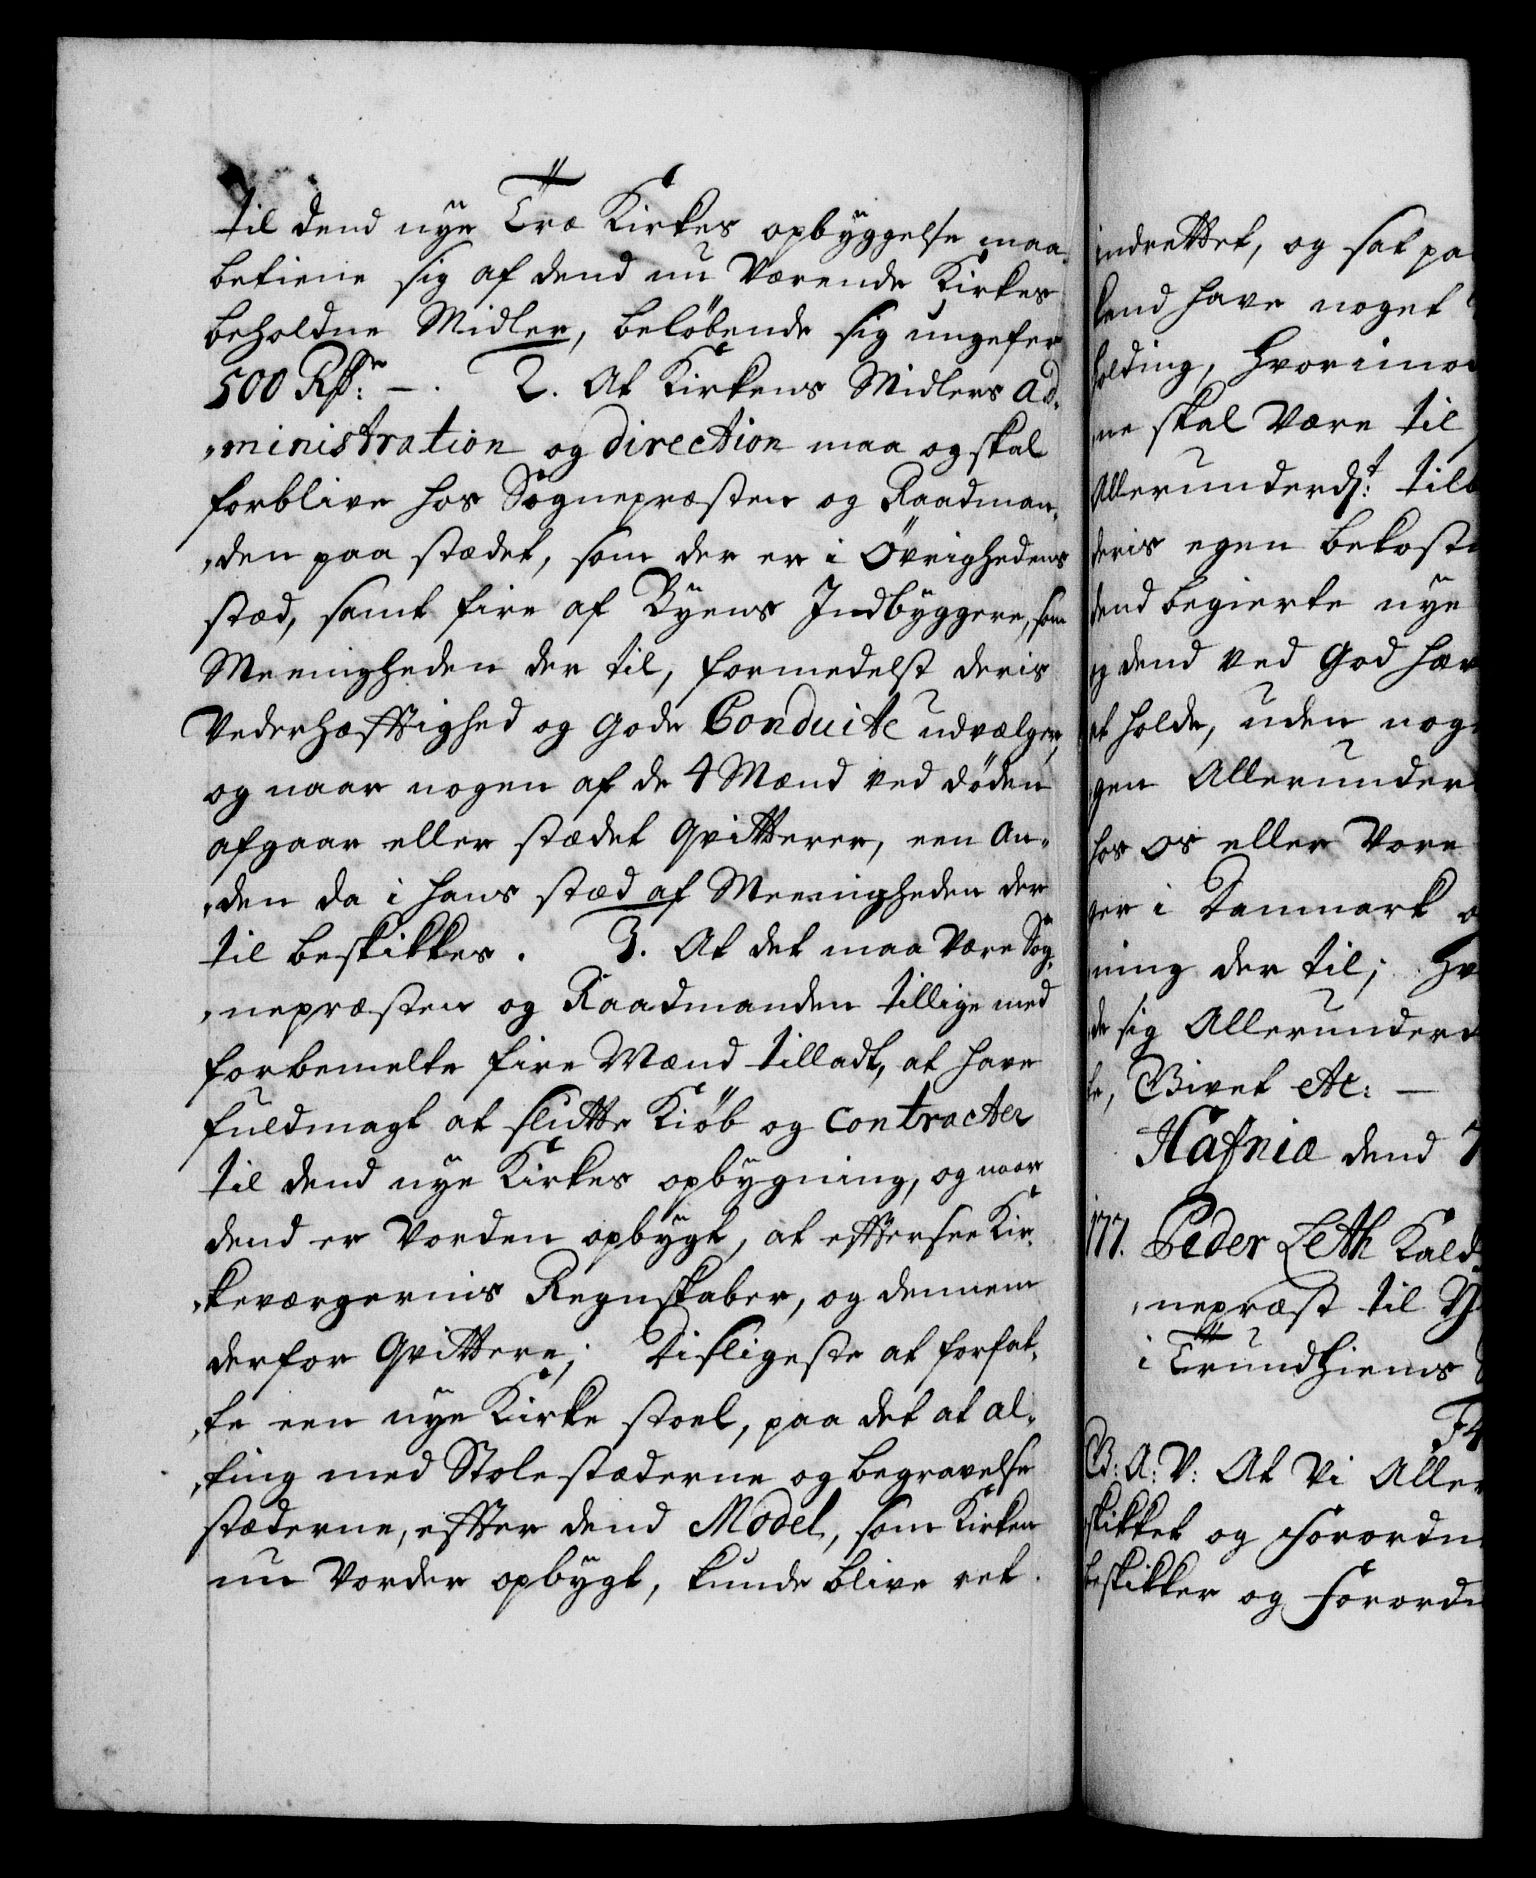 til dend nye Træ Kirkes opbyggelse maa
betiene sig af dend nu Værende Kirkes
beholdne Midler, beløbende sig ungefer
500 Rdr: —. 2. At Kirkens Midlers ad-
„ministration og direction maa og skal
forblive hos Sognepræsten og Raadman-
„den paa stædet, som der er i Øvrighedens
stæd, samt fire af Byens Indbyggere, som
Meenigheden der til, formedelst deris
Vederhæfftighed og gode Conduite udvælger,
og naar nogen af de 4 Mænd ved døden
afgaar eller stædet qvitterer, een an-
„den da i hans stæd af Meenigheden der
til beskikkes. 3. At det maa være Sog-
„nepræsten og Raadmanden tillige med
forbemelte fire Mænd tilladt, at have
fuldmagt at slutte Kiøb og Contracter
til dend nye Kirkes opbygning, og naar
dend er Vorden opbygt, at efftersee Kir-
„keværgernis Regnskaber, og dennem
derfor qvittere; disligeste at forfat-
„te een nye Kirke stoel, paa det at al-
„ting med Stolestæderne og begravelse
stæderne, effter dend Model, som Kirken
nu Vorder opbygt, kunde blive ret-
indrettet, og sat paa
kend have noget
holding, hvorimod
ne skal Være til
Allerunderdt: tilb
deris egen bekostn
dend begierte nye
g dend ved god hæv
at holde, uden nog
gen Allerunder
hos os eller Vore
ger i Danmark o
ning der til; Hv
de sig Allerunder
te, Bivet etc: —
Hafniæ dend 7
177. Peder Leth Kald-
„nepræst til
i Trundhiems
F4
G: A: V: At Vi Aller
skikket og Forordn
beskikker og Forordn